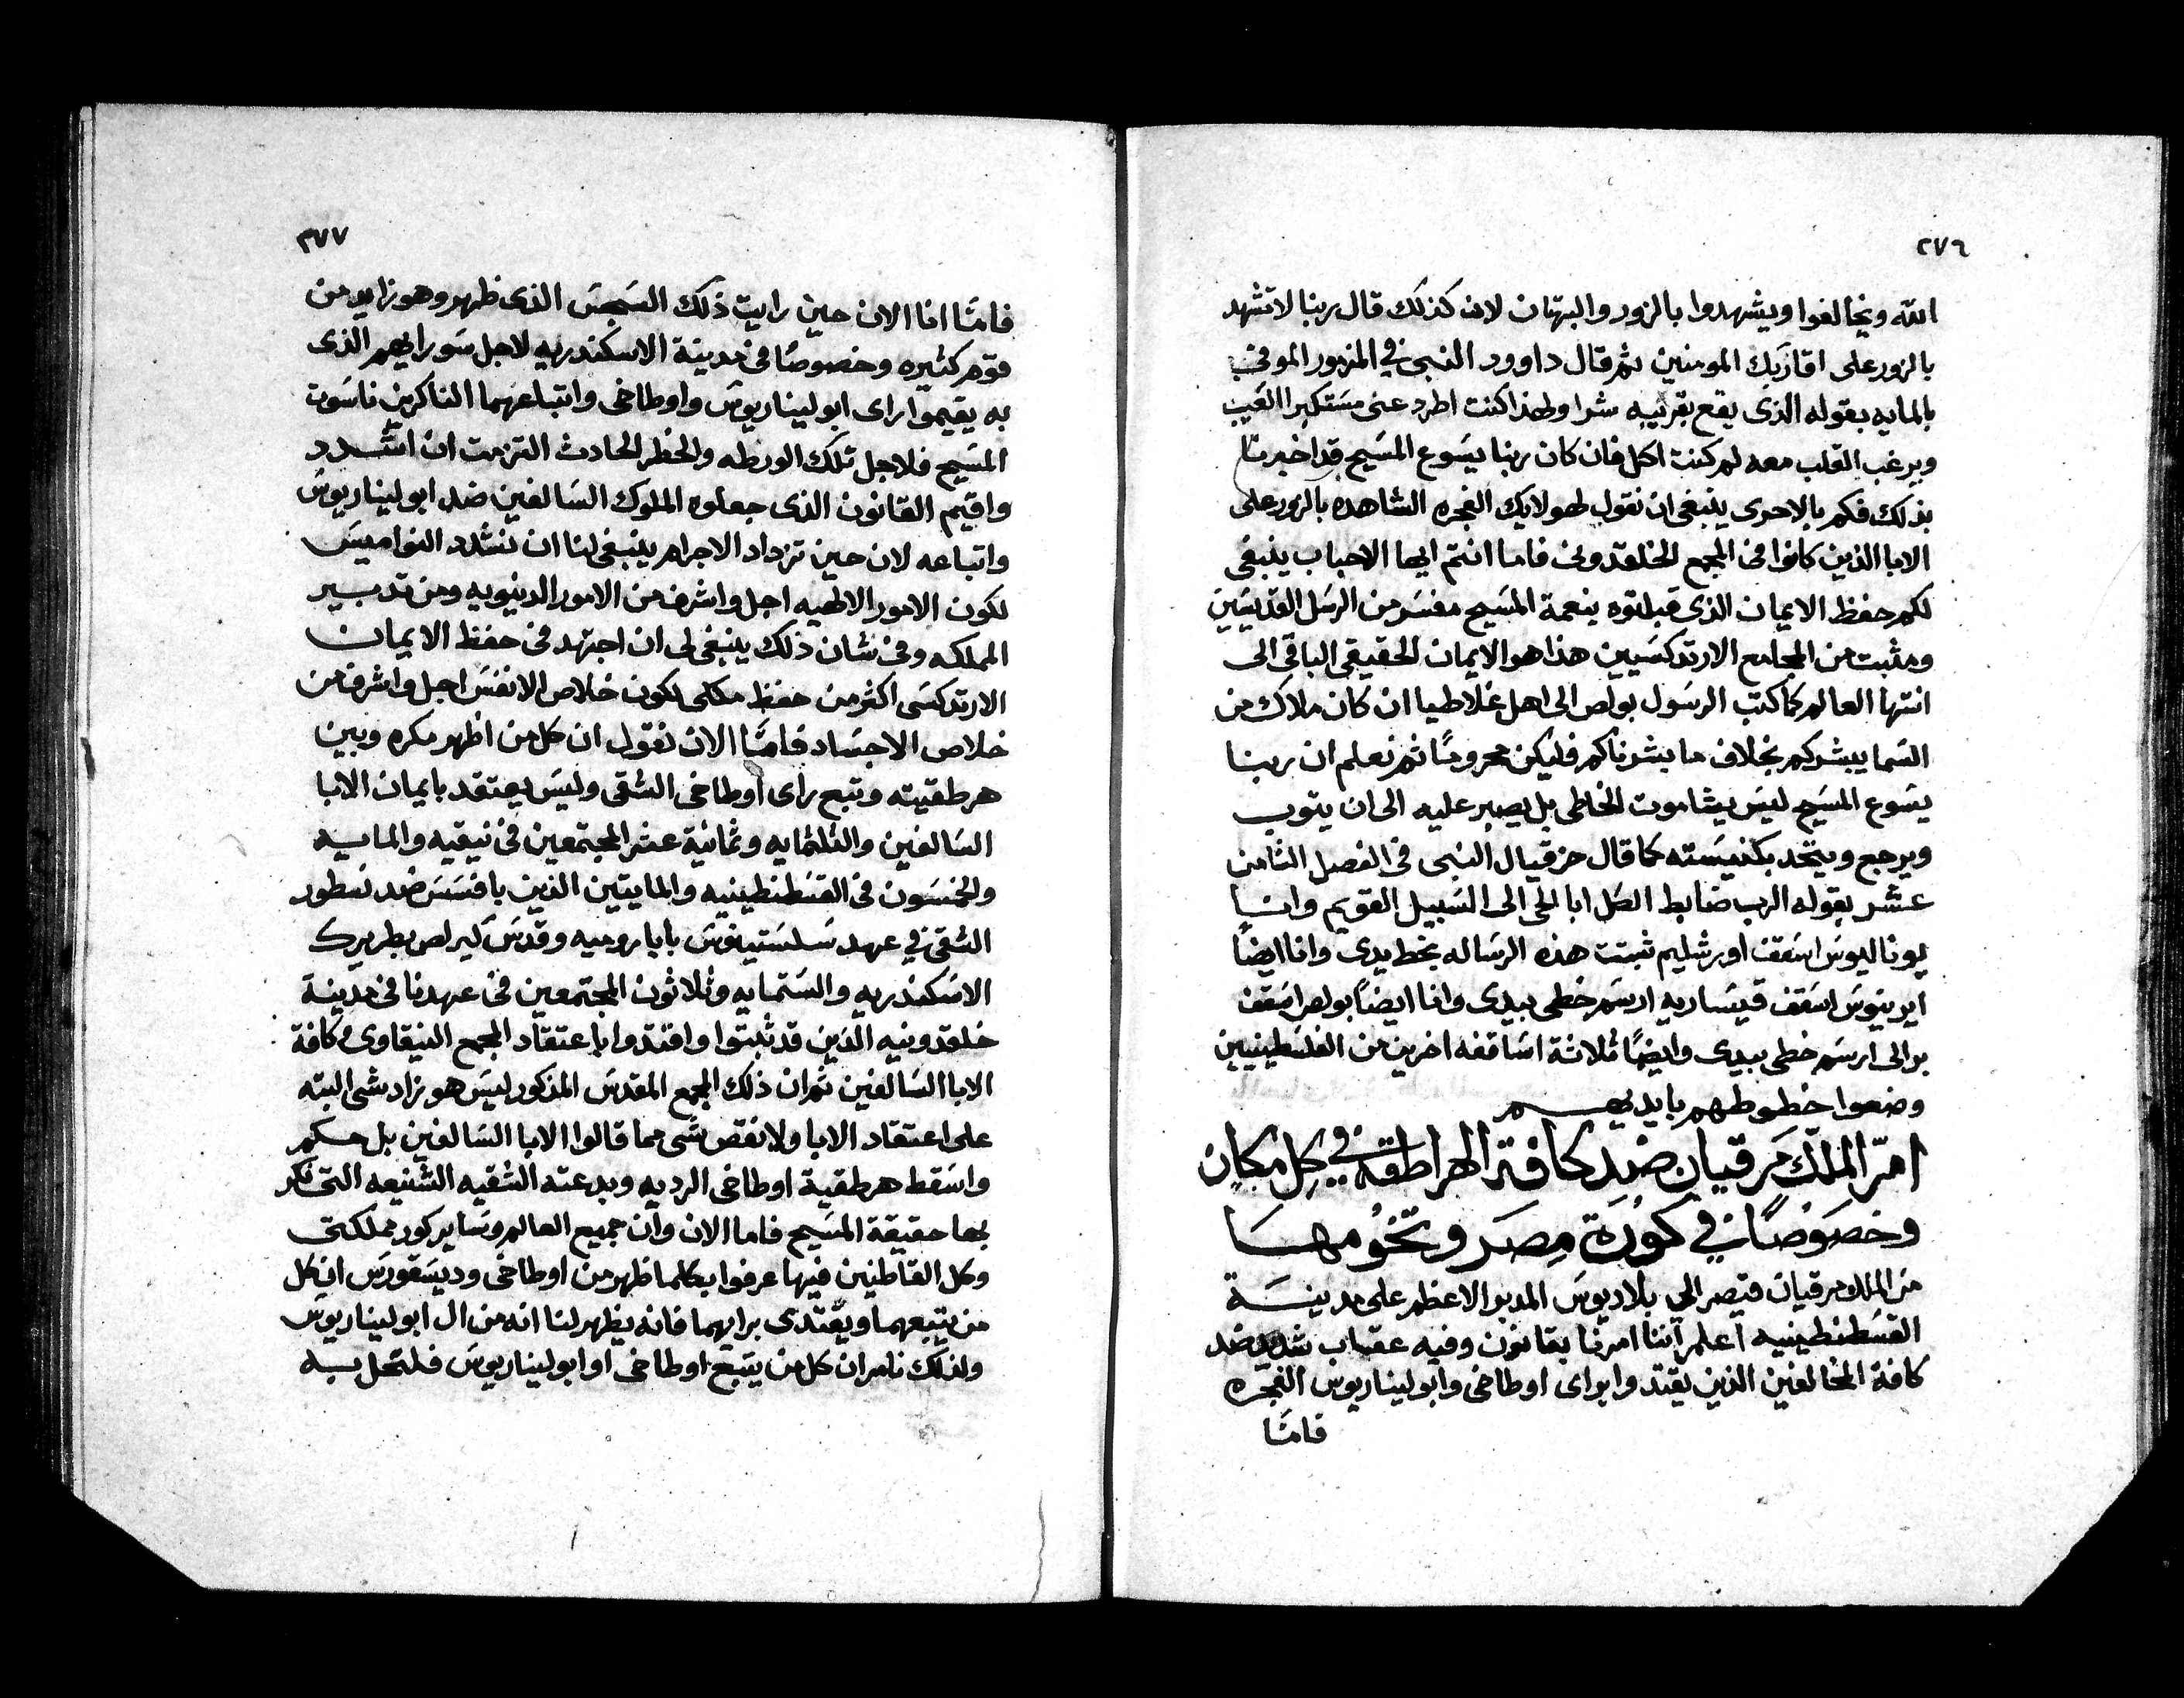 ٢٧٦
الله ويخالفوا ويشهدوا بالزور والبهتان لان كذلك قال ربنا لاتشهد
بالزور على اقاربك المومنين ثم قال داوود النبى في المزمور الموفى
بالمايه بقوله الذى يقع بقريبه شرا ولهذا كنت اطرد عنى مستكبر العين
وبرغب القلب معه لم كنت اكل فان كان ربنا يسوع المسيح قد اخبرنا
بذلك فكم بالاحرى ينبغى ان نقول لهولايك الفجره الشاهده بالزور على
الابا الذين كانوا فى المجمع الخلقدونى فاما انتم ايها الاحباب ينبغى
لكم حفظ الايمان الذى قبلتوه بنعمة المسيح مفسر من الرسل القديسين
ومثبت من المجامع الارتدكسيين هذا هو الايمان الحقيقى الباقى الى
انتها العالم كما كتب الرسول بولص الى اهل غلاطيا ان كان ملاك من
السما يبشركم بخلاف ما بشرناكم فليكن محروما ثم نعلم ان ربنا
يسوع المسيح ليس يشا موت الخاطى بل يصبر عليه الى ان يتوب
ويرجع ويتحد بكنيسته كما قال حزقيال النبى فى الفصل الثامن
عشر بقوله الرب ضابط الكل ابا الحى الى السبيل القويم وانا
يوناليوس اسقف اورشليم ثبتت هذه الرساله بخط يدى وانا ايضاً
ايرينوس اسقف قيساريه ارسم خطى بيدى وانا ايضاً بولص اسقف
برالى ارسم خطى بيدى وايضاً ثلاثة اساقفه اخرين من الفلسطينيين
وضعوا خطوطهم بايديهم
امر الملك مرقيان ضد كافة الهراطقه في كل مكان
وخصوصاً في كورة مصر وتخومها
من الملك مرقيان قيصر الي بلاديوس المدبر الاعظم على مدينة
القسطنطينيه اعلم اننا امرنا بقانون وفيه عقاب شديد ضد
كافة المخالفين الذين يقتدوا براى اوطاخى وابوليناريوس الفجره
فامّا
٢٧٧
فامّا انا الان حين رايت ذلك السجس الذى ظهر وهو زايد من
قوم كثيره وخصوصاً فى مدينة الاسكندريه لاجل سو رايهم الذى
به يقيموا راى ابوليناريوس واوطاخى واتباعهما الناكرين ناسوت
المسيح فلاجل تلك الورطه والخطر الحادث التزمت ان اشدد
واقيم القانون الذى جعلوه الملوك السالفين ضد ابوليناريوس
واتباعه لان حين تزداد الاجرام ينبغى لنا ان نشدد النواميس
لكون الامور الالهيه اجل واشرف من الامور الدنيويه ومن تدبير
المملكه وفى شان ذلك ينبغى لى ان اجتهد فى حفظ الايمان
الارتدكسى اكثر من حفظ ملكى لكون خلاص الانفس اجل واشرف من
خلاص الاجساد فامّا الان نقول ان كل من اظهر مكره وبين
هرطقيته وتبع راى اوطاخى الشقى وليس يعتقد بايمان الابا
السالفين والثلثمايه وثمانية عشر المجتمعين فى نيقيه والمايه
والخمسون فى القسطنطينيه والمايتين الذين بافسس ضد نسطور
الشقى في عهد سلستينوس بابا روميه وقدس كيرلص بطريرك
الاسكندريه والستمايه وثلاثون المجتمعين فى عهدنا فى مدينة
خلقدونيه الذين قد ثبتوا واقتدوا باعتقاد المجمع النيقاوى وكافة
الابا السالفين ثم ان ذلك المجمع المقدس المذكور ليس هو زاد شى البته
على اعتقاد الابا ولا نقص شى مما قالوا الابا السالفين بل حكم
واسقط هرطقية اوطاخى الرديه وبدعته الشقيه الشنيعه التى نكر
بها حقيقة المسيح فاما الان وان جميع العالم وساير كور مملكتى
وكل القاطنين فيها عرفوا بكلما ظهر من اوطاخى وديسقورس ان كل
من يتبعهما ويقتدى برايهما فانه يظهر لنا انه من ال ابوليناريوس
ولذلك نامر ان كل من يتبع اوطاخى او ابوليناريوس فلتحل به